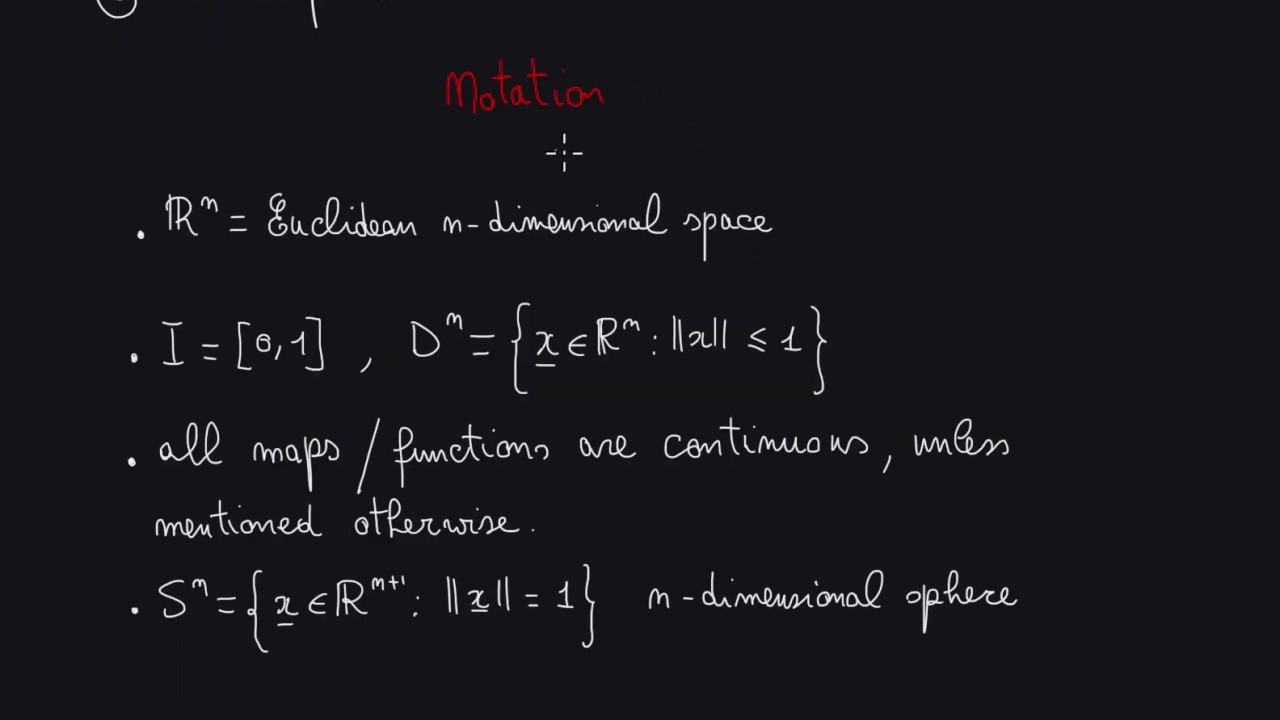 Notation
. ℝⁿ = Euclidean n-dimensional space
. I = [0,1] , Dⁿ = { x̲ ∈ ℝⁿ : ||x|| ≤ 1 }
. all maps / functions are continuous, unless
mentioned otherwise.
. Sⁿ = { x̲ ∈ ℝⁿ⁺¹ : ||x̲|| = 1 } n-dimensional sphere